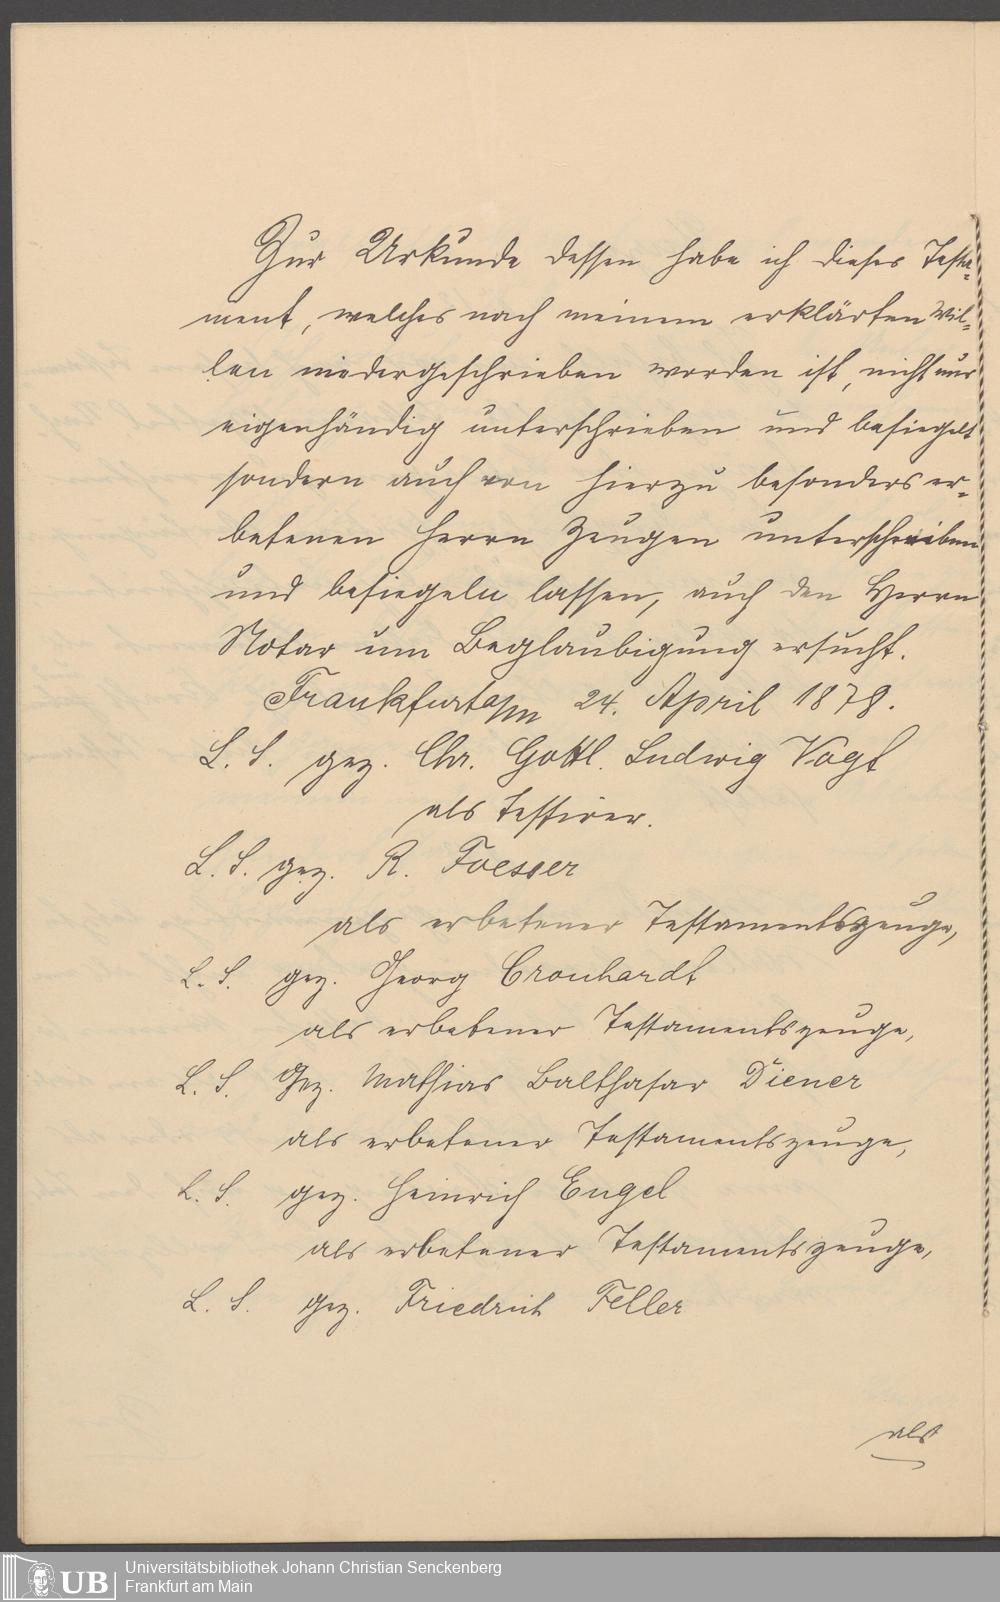 Zur Urkunde dessen habe ich dieses Testa-
ment, welches nach meinem erklärten Wil-
len niedergeschrieben worden ist, nicht nur
eigenhändig unterschrieben und besiegelt
sondern auch von hierzu besonders er-
betenen Herrn Zeugen unterschreiben
und besiegeln lassen, auch den Herrn
Notar um Beglaubigung ersucht.
Frankfurt a/m 24. April 1878.
L. S. gez. Chr. Gottl. Ludwig Vogt
als Testirer.
L. S. gez. R. Foesser
als erbetener Testamentszeuge,
L. S. gez. Georg Cronhardt
als erbetener Testamentszeuge,
L. S. Gez. Mathias Balthasar Diener
als erbetener Testamentszeuge,
L. S. gez. Heinrich Engel
als erbetener Testamentszeuge,
L. S. gez. Friedrich Feller
als
UB Universitätsbibliothek Johann Christian Senckenberg
Frankfurt am Main